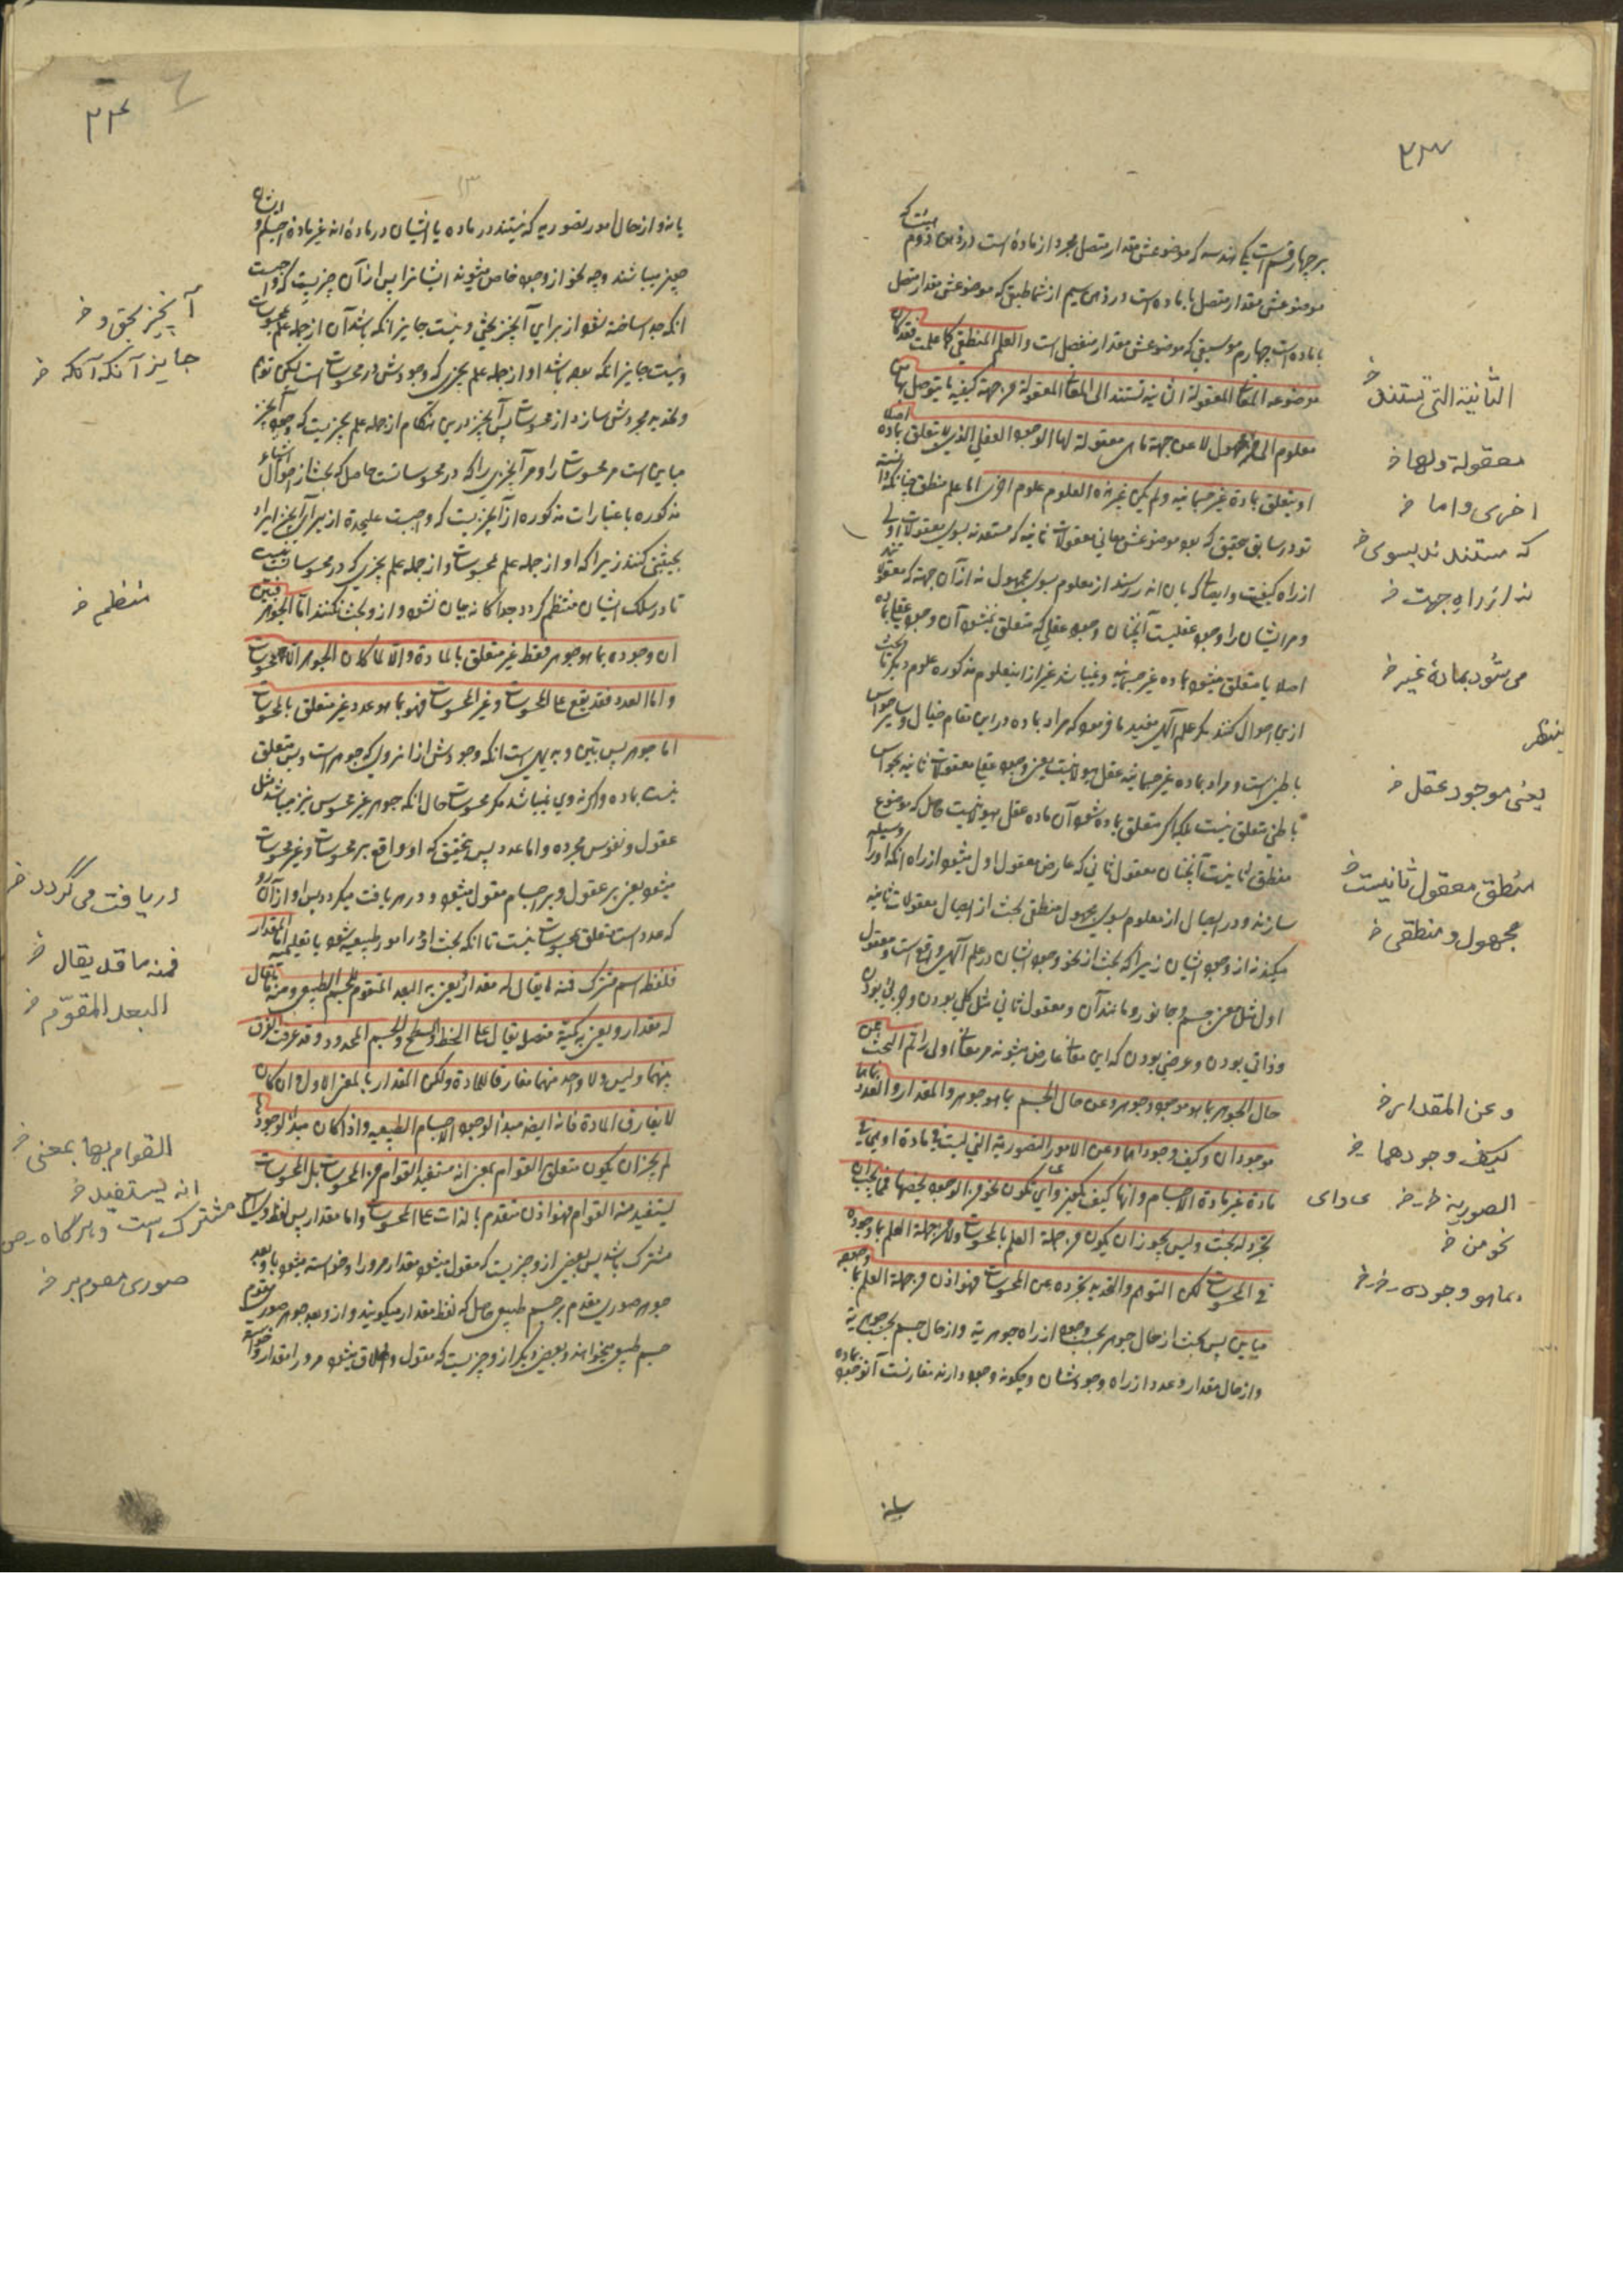 ۲۳۳
بر چهار قسم است یکی هندسه که موضوعش مقدار متصل مجرد از ماده است در ذهن دوم هیئت که
موضوعش مقدار متصل با ماده است در ذهن سیم از شماطیقی که موضوعش مقدار منفصل
با ماده است چهارم موسیقی که موضوعش مقدار منفصل است والعلم المنطقی کما علمت فقد کان
موضوعه المعانی المعقولة الثانیه تستند الی المعانی المعقولة من جهة کیفیة ما یتوصل بها من
معلوم الی مجهول لا من جهة ما هی معقولة لها الوجود العقلی الذی لا یتعلق بماده اصلا
او یتعلق بمادة غیر جسمانیه ولم یکن غیر هذه العلوم علوم اخری اما علم منطق چنانکه دانسته
تو در سابق بتحقیق که بود موضوعش معانی معقولات ثانیه که مستندند بسوی معقولات اولی
از راه کیفیت وایصالی که بان انه رسند از معلوم بسوی مجهول نه از آن جهة که معقولند
ومر ایشان را وجود عقلیست آنچنان وجود عقلی که متعلق نمیشود آن وجود عقلی بماده
اصلا یا متعلق میشود بماده غیر جسمانیه ونمیباشد غیر از اینعلوم مذکوره علوم دیگر تا بحث
ازین احوال کنند مگر علم آلهی مفید ما فرمود که مراد بماده در این مقام خیال وسایر حواس
باطنیست ومراد بماده غیر جسمانیه عقل هیولانیست یعنی وجود عقلی معقولات ثانیه بحواس
باطنی متعلق نیست بلکه اگر متعلق بماده شود آن ماده عقل هیولانیست حاصل که موضوع
منطق ثانیست آنچنان معقول ثانی که عارض معقول اول میشود از راه آنکه او را وسیله
سازند ودر ایصال از معلوم بسوی مجهول منطقی بحث از ایصال معقولات ثانیه
میکند نه از وجود ایشان زیرا که بحث از نحو وجود ایشان در علم آلهی واقع است ومعقول
اول مثل معنی جسم وجانور ومانند آن ومعقول ثانی مثل کلی بودن وجزئی بودن
وذاتی بودن وعرضی بودن که این معانی عارض میشوند مر معانی اولی را ثم البحث عن
حال الجوهر بما هو موجود وجوهر وعن حال الجسم بما هو جوهر والمقدار والعدد بما هما
موجودان وکیف وجودهما وعن الامور التصوریة التی لیست فی مادة او هی فی
مادة غیر مادة الاجسام وانها کیف یکون وای نحو من الوجود یخصها فمما یجب ان
یجرد له بحث ولیس یجوز ان یکون من جملة العلم بالمحسوسات ولا من جملة العلم بما وجوده
فی المحسوسات لکن التوهم والتحدید یجرده عن المحسوسات فهو اذن من جملة العلم بما وجوده
مباین پس بحث از حال جوهر بحسب وجود از راه جوهریة واز حال جسم بحسب جوهریة
واز حال مقدار وعدد از راه وجودشان وچگونه وجود دارند مقارنست آنوجود بماده
یا نه
الثانیة التی تستند خ
معقولة ولها خ
اخری واما خ
که مستندند بسوی خ
نه از راه جهت خ
می شود بماده غیر خ
ینظر
یعنی موجود عقل خ
منطق معقول ثانیست خ
مجهول ومنطقی خ
وعن المقدار خ
کیف وجودهما خ
الصوریة خ
نحو من خ
بما هو وجوده خ
۲۳۴
یا نه واز حال امور تصوریه که نیستند در ماده یا ایشان در ماده اند غیر ماده اجسام وایشان
چیز میباشند وچه نحو از وجود خاص میشوند ایشانرا پس از آن چیزیست که واجبست
انکه جدا ساخته شود از برای آنچیز بحثی ونیست جایز انکه باشد آن از جمله علم محسوسات
ونیست جایز انکه بوده باشد او از جمله علم بچیزی که وجودش در محسوسات است لیکن توهم
وتحدید مجردش سازد از محسوسات پس آنچیز در این هنگام از جمله علم بچیزیست که وجود آنچیز
مباین است مر محسوسات را ومر آنچیزی را که در محسوساتست حاصل که بحث از احوال اشیاء
مذکوره باعتبارات مذکوره از آنچیزیست که واجبست علیحده از برای آنچیز ایراد
بحثی کنند زیرا که او از جمله علم محسوسات واز جمله علم بچیزی که در محسوسات نیست
تا در سلک ایشان منتظم گردد جداگانه بیان نشود وازو بحث نکنند اما الجوهر فبین
ان وجوده بما هو جوهر فقط غیر متعلق بالمادة والا لما کان الجوهر الا محسوسا
واما العدد فقد یقع علی المحسوسات وغیر المحسوسات فهو بما هو عدد غیر متعلق بالمحسوسات
اما جوهر پس بین وبدیهی است انکه وجودش از انروی که جوهر است وبس متعلق
نیست بماده واگرنه وی نمیباشد مگر محسوسات حال انکه جوهر غیر محسوس نیز میباشد مثل
عقول ونفوس مجرده واما عدد پس بتحقیق که او واقع بر محسوسات وغیر محسوسات
میشود یعنی بر عقول وبر اجسام مقول میشود ودر هر یافت میگردد پس او از آن رو
که عدد است متعلق بمحسوسات نیست تا انکه بحث او در امور طبیعیه شود یا تعلیمیه اما المقدار
فلفظه اسم مشترک فمنه ما یقال له مقدار یعنی به البعد المتقوم للجسم الطبیعی ومنه ما یقال
له مقدار ویعنی به کمیة متصلة یقال علی الخط والسطح والجسم المحدود وقد عرفت الفرق
بینهما ولیس ولا واحد منهما مفارقا للمادة ولکن المقدار بالمعنی الاول وان کان
لا یفارق المادة فانه ایضا مبدأ لوجود الاجسام الطبیعیه واذا کان مبدأ لوجودها
لم یجز ان یکون متعلق القوام بمعنی انه مستفید القوام من المحسوسات بل المحسوسات
یستفید منه القوام فهو اذن متقدم بالذات علی المحسوسات واما مقدار پس لفظ وی
مشترک باشد پس بعضی از و چیزیست که مقول میشود مقدار مر او را وخواسته میشود با و بعد
جوهر صوری مقوم بر جسم طبیعی حاصل که لفظ مقدار میگویند واز و بعد جوهر صوری مقوم
جسم طبیعی میخواهند وبعضی دیگر از و چیزیست که مقول واطلاق میشود مر ورا مقدار وخواسته
آنچیز بحق و خ
جایز آنکه آنکه خ
منظم خ
دریافت می گردد خ
فمنه ما قد یقال خ
البعد المقوّم خ
القوام بها بمعنی خ
انه یستفید خ
مشترک است وهرگاه
صوری مقوم بر خ